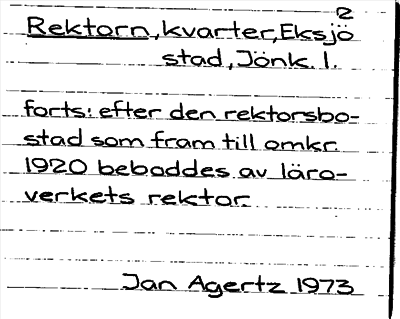 2
Rektorn, kvarter, Eksjö
stad, Jönk. l.
forts: efter den rektorsbo-
stad som fram till omkr.
1920 beboddes av läro-
verkets rektor.
Jan Agertz 1973